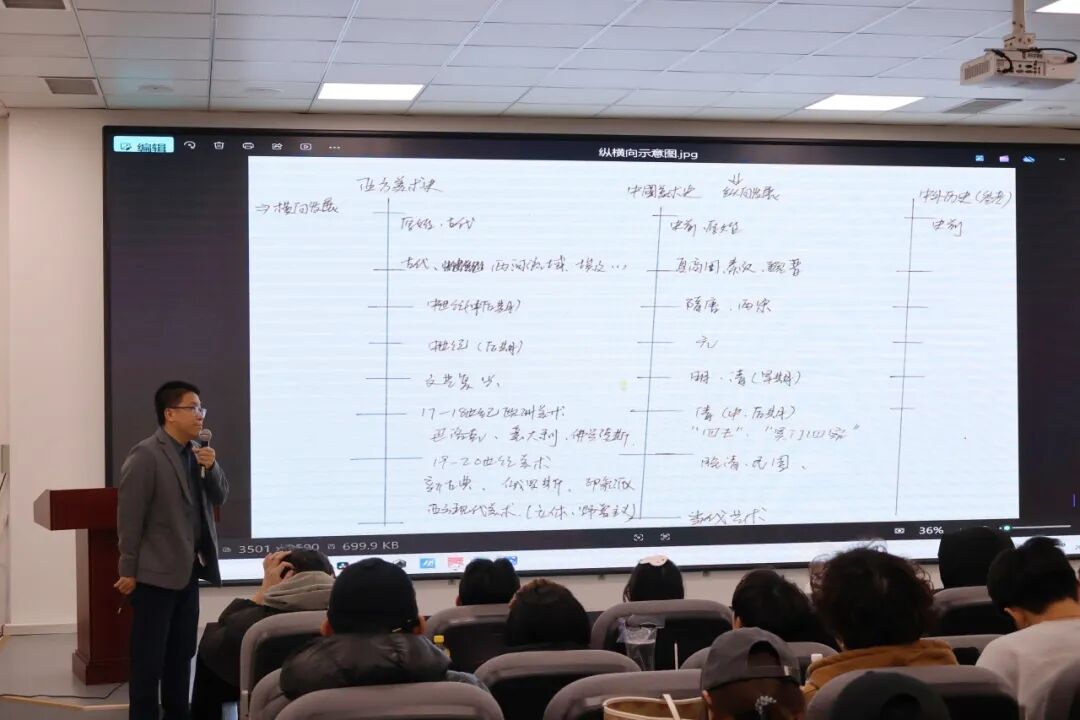 编辑
纵横向示意图.jpg
西方美术史
中國美术史 纵向发展
中外历史(参考)
⇒横向发展
原始、古代
史前、原始
史前
古代、两河流域、埃及…
夏商周、秦汉、魏晋
中世纪(中后期)
隋唐、两宋
中世纪(后期)
元
文艺复兴、
明、清(早期)
17-18世纪欧洲美术
清(中、后期)
巴洛克、意大利、佛兰德斯
"四王"、"
19-20世纪美术
晚清、民国、
新古典、俄罗斯、印象派
西方现代美术、(立体、野兽主义)
当代艺术
36%
699.9 KB